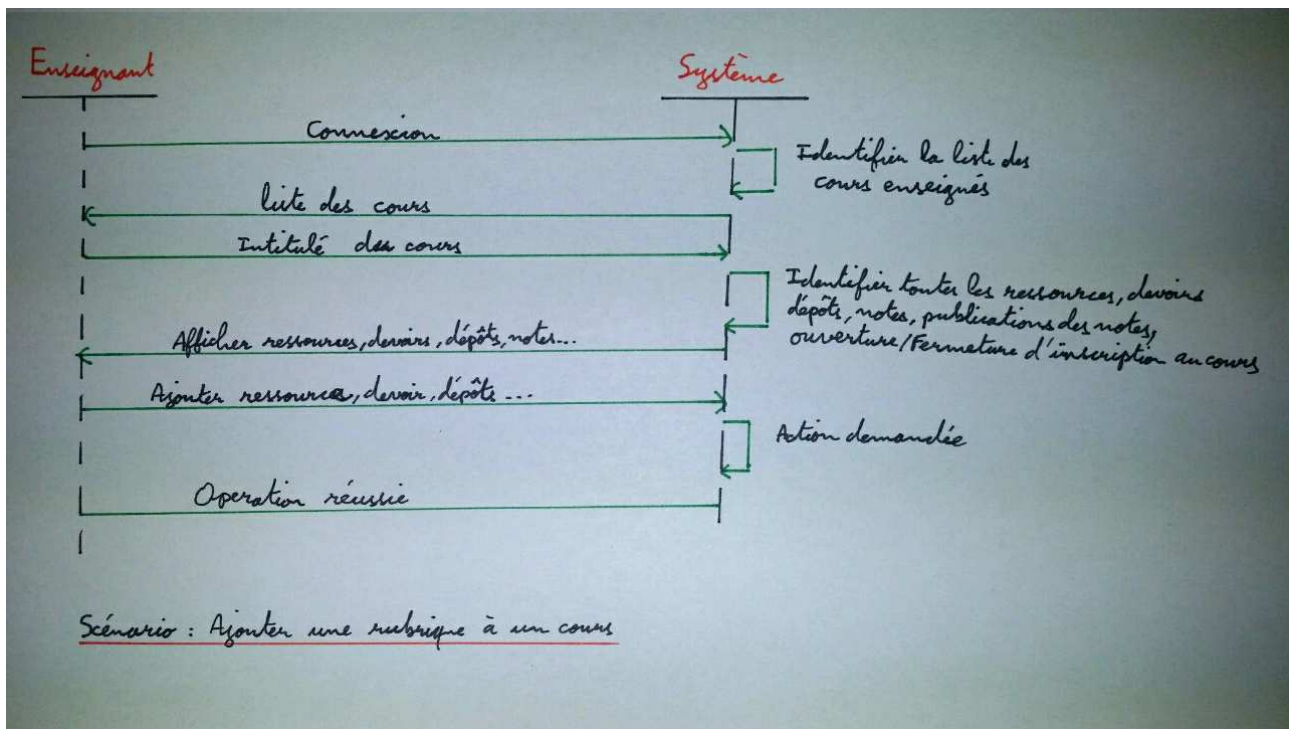 Enseignant
Système
Connexion
Identifier la liste des
cours enseignés
liste des cours
Intitulé du cours
Identifier toutes les ressources, devoirs
dépôts, notes, publications des notes,
ouverture/Fermeture d'inscription au cours
Afficher ressources, devoirs, dépôts, notes...
Ajouter ressource, devoir, dépôts ...
Action demandée
Operation réussie
Scénario : Ajouter une rubrique à un cours